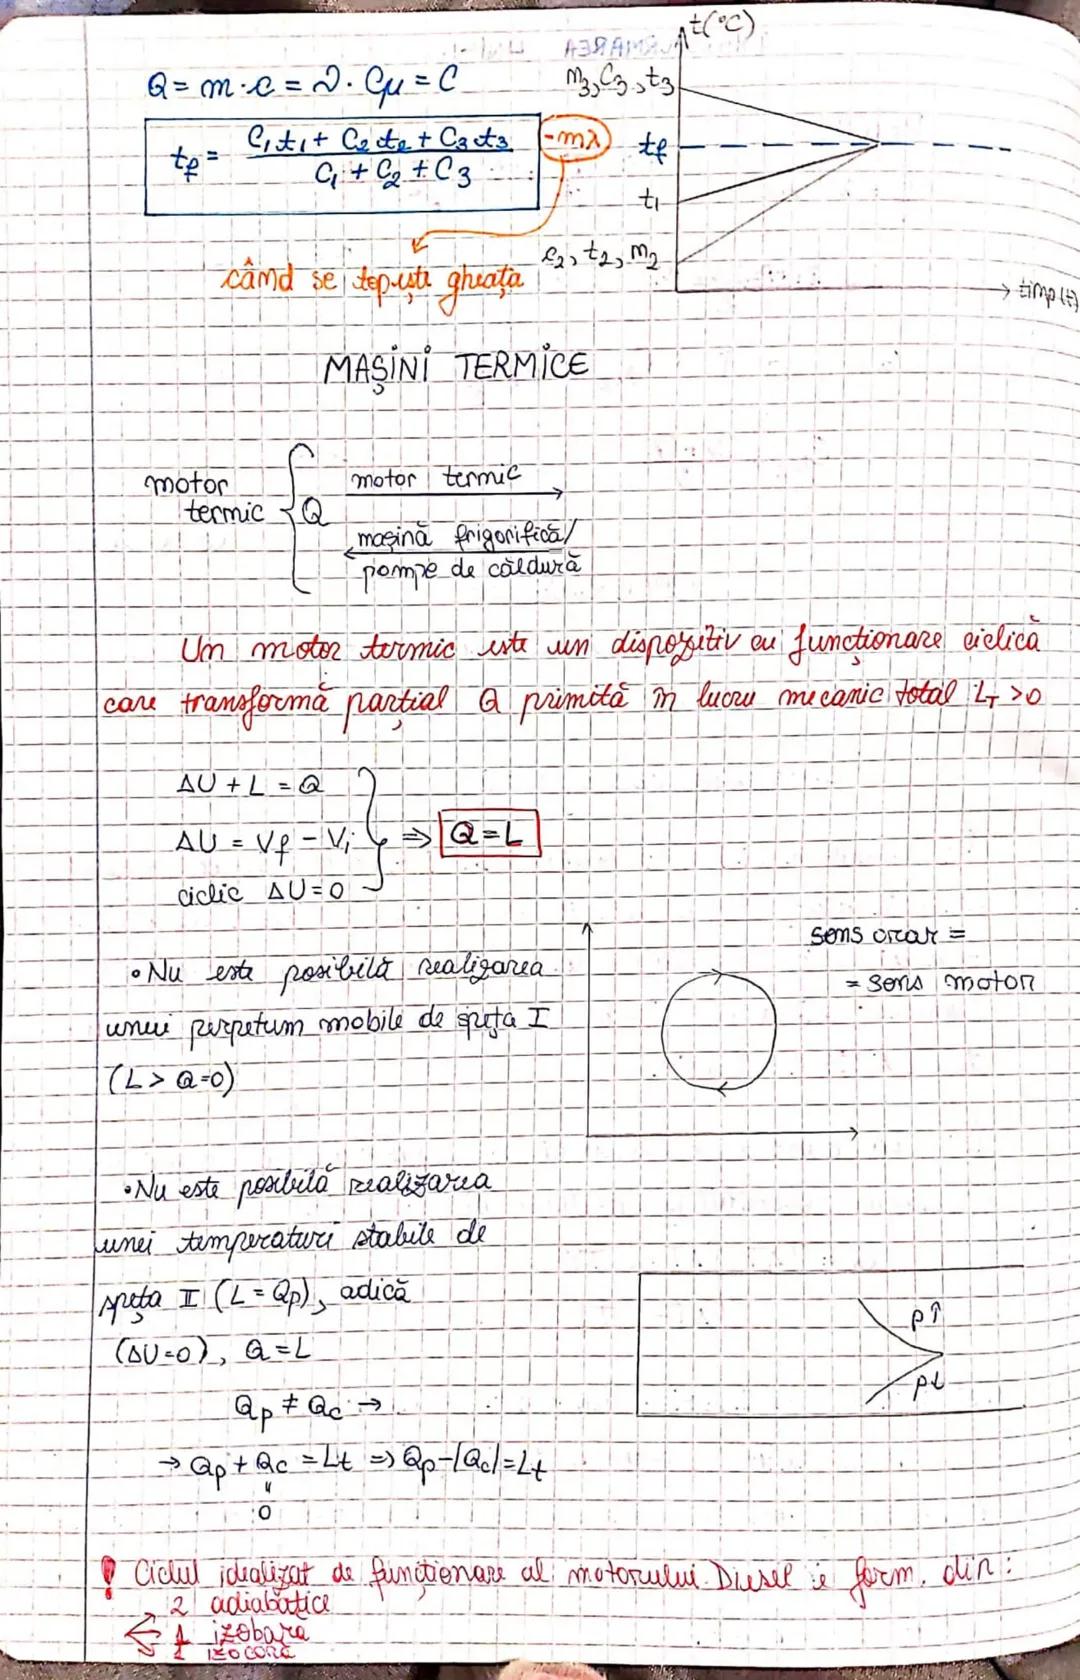 t(°C)
Q = m·c = ν·Cμ = C
m3, C3, t3
tf = (C1t1 + C2t2 + C3t3) / (C1 + C2 + C3)
-mλ
tf
t1
c2, t2, m2
când se topește gheața
timp (t)
MAȘINI TERMICE
motor
termic
Q
motor termic
mașină frigorifică/
pompe de căldură
Un motor termic este un dispozitiv cu funcționare ciclică
care transformă parțial Q primită în lucru mecanic total LT >0
ΔU + L = Q
ΔU = Vf - Vi
ciclic ΔU = 0
⇒ Q = L
sens orar =
= sens motor
• Nu este posibilă realizarea
unui perpetum mobile de speța I
(L > Q=0)
• Nu este posibilă realizarea
unei temperaturi stabile de
speța II (L = Qp), adică
(ΔU=0), Q = L
p↑
p↓
Qp ≠ Qc →
→ Qp + Qc = Lt ⇒ Qp - |Qc| = Lt
"
0
! Ciclul idealizat de funcționare al motorului Diesel e form. din:
2 adiabatice
1 izobară
1 izocoră